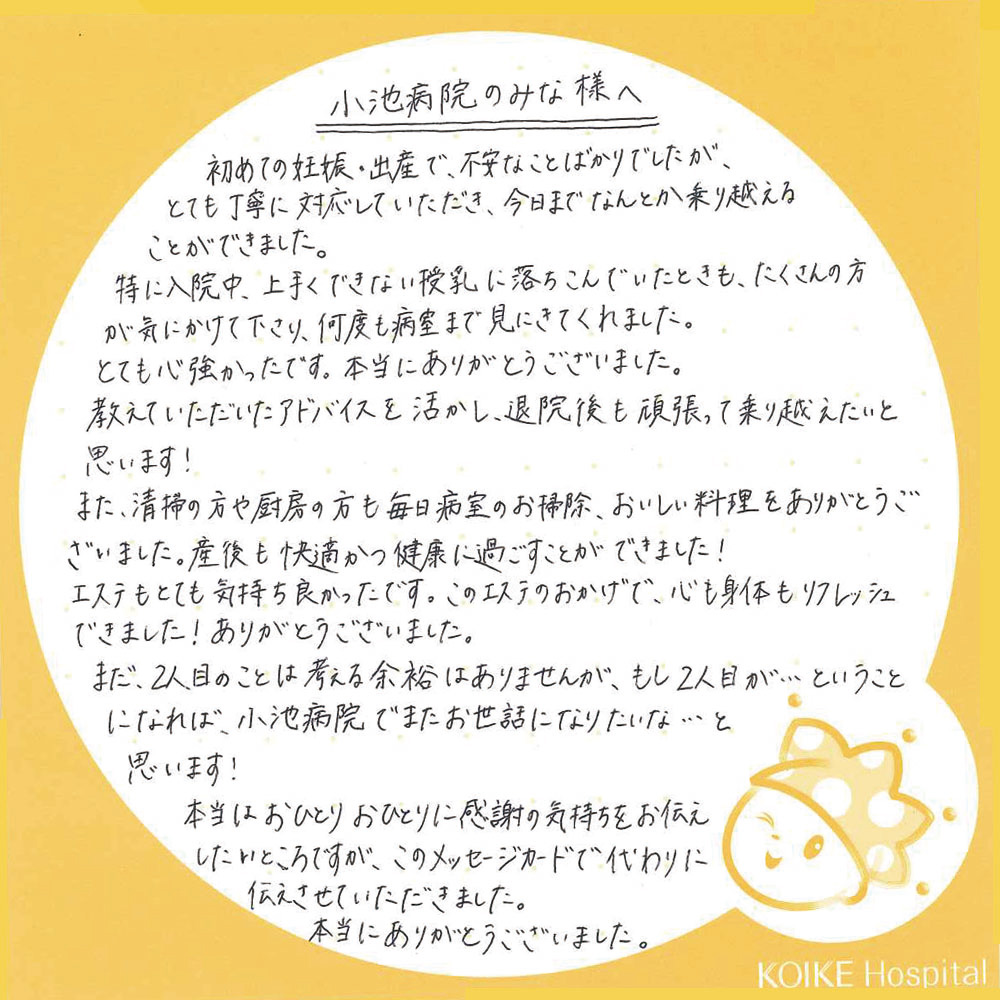 小池病院のみな様へ
初めての妊娠・出産で、不安なことばかりでしたが、
とても丁寧に対応していただき、今日までなんとか乗り越える
ことができました。
特に入院中、上手くできない授乳に落ちこんでいたときも、たくさんの方
が気にかけて下さり、何度も病室まで見にきてくれました。
とても心強かったです。本当にありがとうございました。
教えていただいたアドバイスを活かし、退院後も頑張って乗り越えたいと
思います!
また、清掃の方や厨房の方も毎日病室のお掃除、おいしい料理をありがとうご
ざいました。産後も快適かつ健康に過ごすことができました!
エステもとても気持ち良かったです。このエステのおかげで、心も身体もリフレッシュ
できました!ありがとうございました。
まだ、2人目のことは考える余裕はありませんが、もし2人目が…ということ
になれば、小池病院でまたお世話になりたいな…と
思います!
本当はおひとりおひとりに感謝の気持ちをお伝え
したいところですが、このメッセージカードで代わりに
伝えさせていただきました。
本当にありがとうございました。
KOIKE Hospital